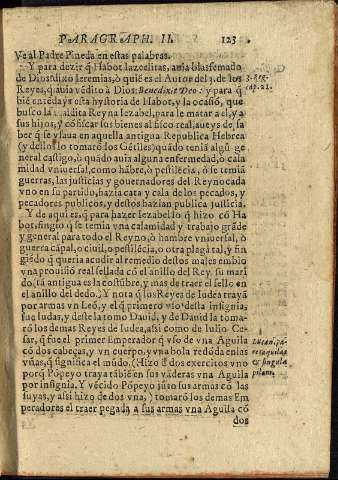 PARAGRAPH. II. 123
Ve al Padre Pineda en estas palabras.
Y para dezir q̃ Habot Iazrelitas, auia blasfemado
de Dios: dixo Ieremias, ò quiẽ es el Autor del 3. de los
3. Reg.
Reyes, q̃ auia vẽdito à Dios: Benedixit Deo: y para q̃
cap. 21.
biẽ entẽdays esta hystoria de Habot, y la ocasiõ, que
busco la maldita Reyna Iezabel, para le matar a el, y a
sus hijos, y cõfiscar sus bienes al fisco real, aueys de sa
ber q̃ se vsaua en aquella antigua Republica Hebrea
(y dellos lo tomarõ los Gẽtiles) quãdo teniã algũ ge
neral castigo, ò quãdo auia alguna enfermedad, ò cala
midad vniuersal, como hãbre, ò pestilẽcia, ò se temiã
guerras, las justicias y gouernadores del Reyno cada
vno en su partido, hazia cata y cala de los pecados, y
pecadores publicos, y destos hazian publica justicia.
Y de aqui es, q̃ para hazer Iezabel lo q̃ hizo cõ Ha
bot, fingio q̃ se temia vna calamidad y trabajo grãde
y general para todo el Reyno, ò hambre vniuersal, ò
guerra cãpal, o ciuil, o pestilẽcia, o otra plaga tal, y fin
giẽdo q̃ queria acudir al remedio destos males embio
vna prouisiõ real sellada cõ el anillo del Rey. su mari
do (tã antigua es la costũbre, y mas de traer el sello en
el anillo del dedo.) Y nota q̃ los Reyes de Iudea trayã
por armas vn Leõ, y el q̃ primero vsò desta insignia,
fue Iudas, y deste la tomo Dauid, y de Dauid la toma-
rõ los demas Reyes de Iudea, assi como de Iulio Ce-
sar, q̃ fue el primer Emperador q̃ vso de vna Aguila
cõ dos cabeças, y vn cuerpo, y vna bola redõda en las
Lucan. pa-
res aquilas
vñas, q̃ significa el mũdo. (Hizo d̃ dos exercitos vno
& singula
porq̃ Põpeyo traya tãbiẽ en sus vãderas vna Aguila
pilam.
por insignia. Y vẽcido Põpeyo jũto sus armas cõ las
suyas, y assi hizo de dos vna,) tomarõ los demas Em
peradores el traer pegada a sus armas vna Aguila cõ
dos